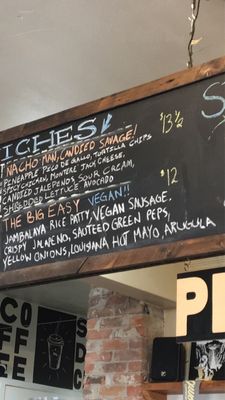 ICHES
NACHO MAN, CANDIED SAVAGE! $13 ½
PINEAPPLE PICO DE GALLO, TORTILLA CHIPS
SPICY CHICKEN, MONTERE JACK CHEESE,
CANDIED JALEPENOS, SOUR CREAM
SHREDDED LETTUCE AVOCADO
THE BIG EASY VEGAN!! $12
JAMBALAYA RICE PATTY, VEGAN SAUSAGE,
CRISPY JALAPENO, SAUTEED GREEN PEPS,
YELLOW ONIONS, LOUISIANA HOT MAYO, ARUGULA
S
CO
FFE
E
PE